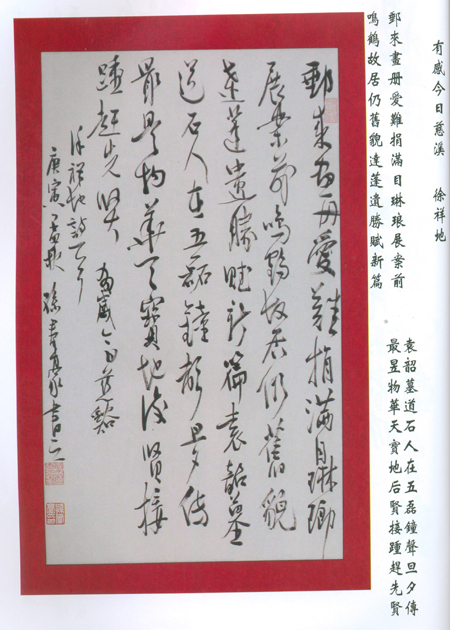 有感今日慈溪 徐祥地
郵來畫册愛難捐滿目琳琅展案前
鳴鶴故居仍舊貌達蓬遺勝賦新篇
袁韶墓道石人在五磊鐘聲旦夕傳
最昱物華天寶地后賢接踵趕先賢
郵來畫册愛難捐滿目琳瑯
展案前鳴鶴故居仍舊貌
達蓬遺勝賦新篇袁韶墓
道石人在五磊鐘聲旦夕傳
最是物華天寶地後賢接
踵趕先賢 有感今日慈谿
徐祥地詩
庚寅孟秋